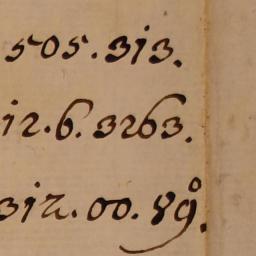 505.313.
12.6.3263.
312.00.89º.